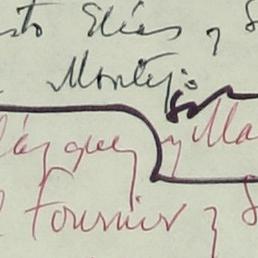 sto Elías y S
Montejo
lázquez y Ma
Fournier y S